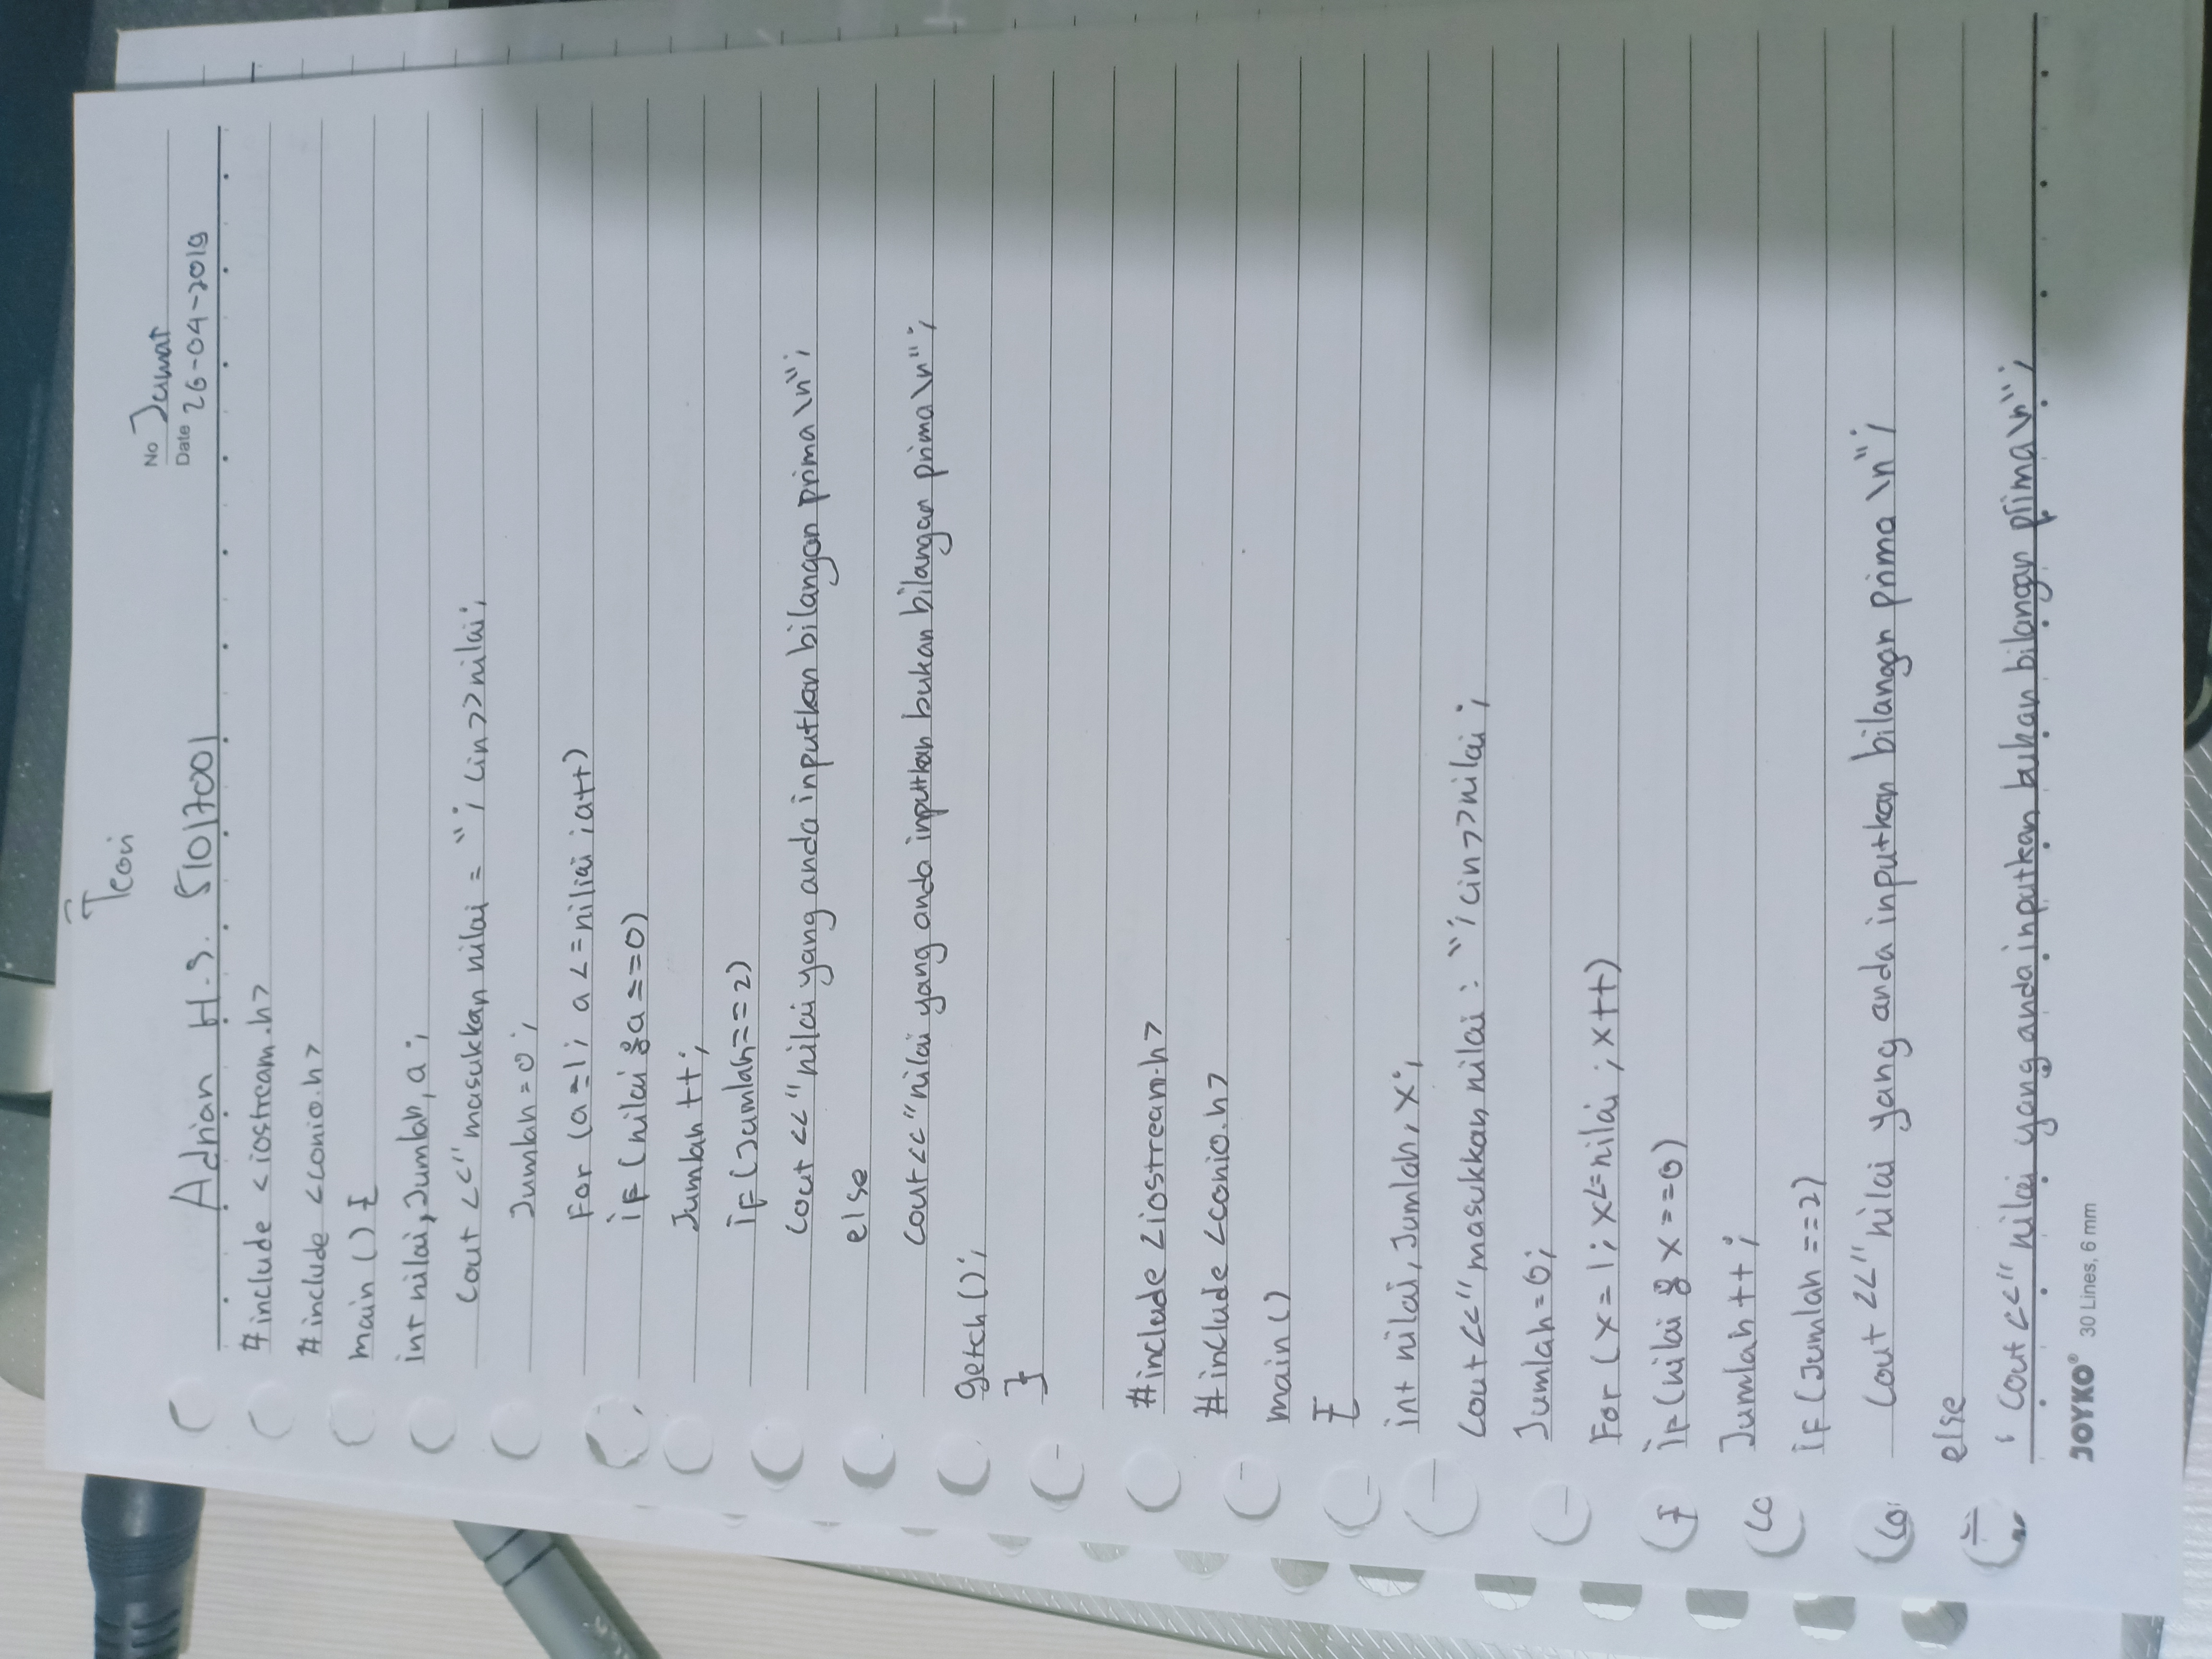 Teori
No Jumat
Date 26-04-2019
Adrian H.S. 51017001
#include <iostream.h>
#include <conio.h>
main() {
int nilai, Jumlah, a;
cout <<"masukkan nilai = "; cin>>nilai;
Jumlah = 0;
For (a=1; a <= niliai ; a++)
iF (nilai % a == 0)
Jumlah ++;
iF (Jumlah == 2)
cout <<"nilai yang anda inputkan bilangan prima \n";
else
cout <<"nilai yang anda inputkan bukan bilangan prima \n";
getch();
}
#include <iostream.h>
#include <conio.h>
main()
{
int nilai, Jumlah, x;
cout <<"masukkan nilai : "; cin>>nilai;
Jumlah = 0;
For (x = 1; x <= nilai ; x++)
iF (nilai % x == 0)
Jumlah ++;
iF (Jumlah == 2)
cout <<"nilai yang anda inputkan bilangan prima \n";
else
cout <<"nilai yang anda inputkan bukan bilangan prima \n";
JOYKO® 30 Lines, 6 mm